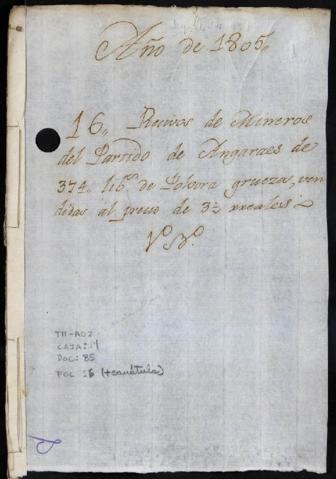 Año de 1805,,
16,, Recivos de Mineros
del Partido de Angaraes de
374,, lib.s de Polvora grueza, ven
didas al precio de 3½ rreales
V.o B.o
TH-AD2
CAJA: 14
DOC: 85
FOL: 6 (+carátula)